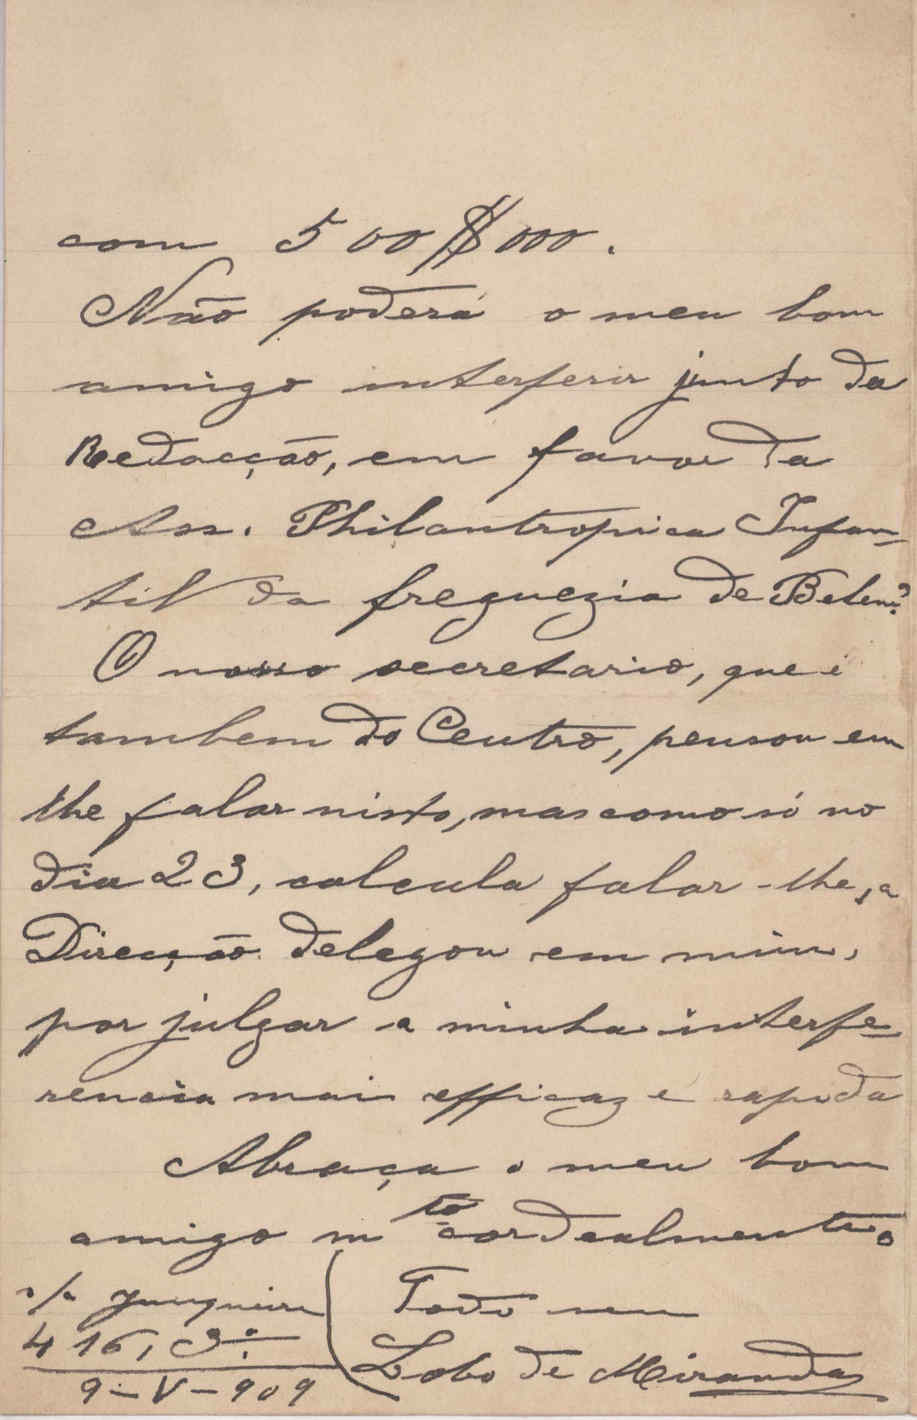 com 500$000.
Não poderá o meu bom
amigo interferir junto da
Redacção, em favor da
Ass. Philantropica Infan-
til da freguezia de Belem?
O nosso secretario, que é
tambem do Centro, pensou em
lhe falar nisto, mas como só no
dia 23, calcula falar-lhe, a
Direcção delegou em mim,
por julgar a minha interfe-
rencia mais efficaz e rapida
Abraça o meu bom
amigo mto cordealmente o
Todo seu
Lobo de Miranda
s/c Junqueira
416, 3º
9-V-909